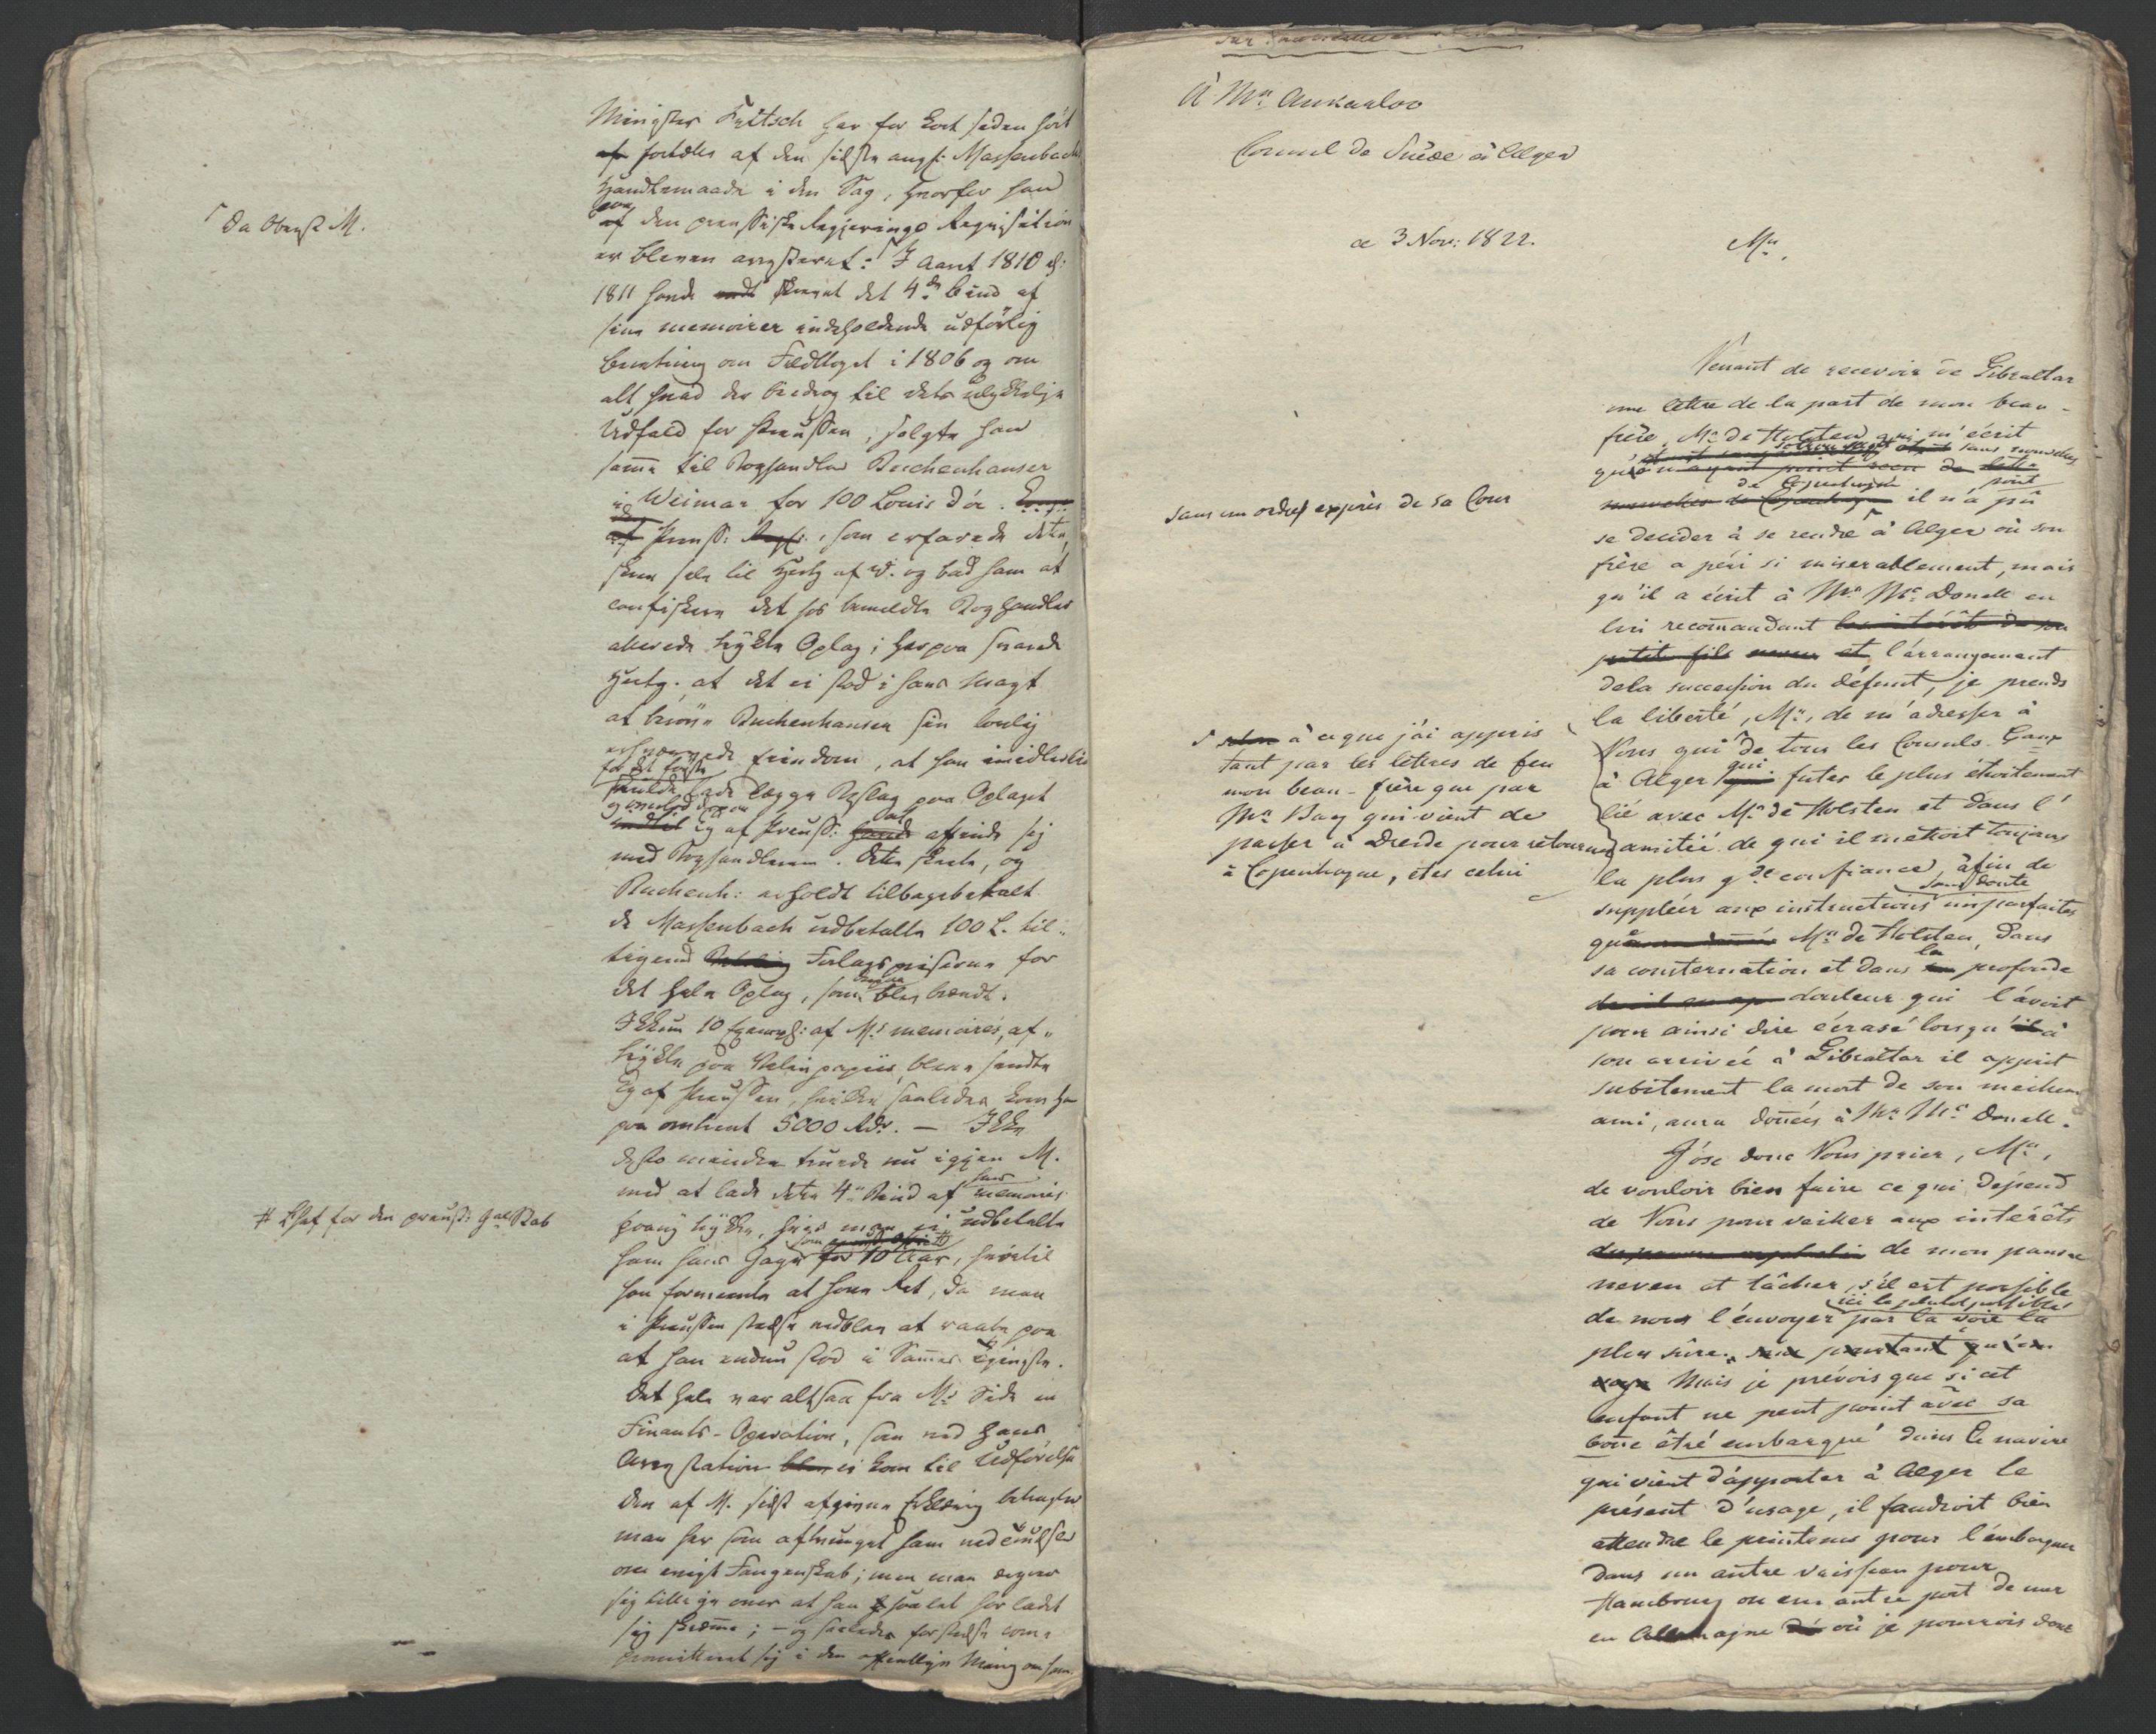 Minister Fritsch har for kort siden hört
fortælles af den sidste ang: Massenbachs
Handlemaade i den Sag, hvorfor han
paa
af den preussiske Regjerings Requisition
er bleven arresteret:
Da Oberst M.
I Aaret 1810 el:
1811 havde skrevet det 4de Bind af
sine memoirer indeholdende udförlig
Beretning om Felttoget i 1806 og om
alt hvad der bidrog til dets ulykkelige
Udfald for Preussen, solgte han
samme til Boghandler
i Weimar for 100 Louis d'or.
af Preuss: som erfarede dette,
skrev selv til Hertz af W. og bad ham at
confiskere det hos bemeldte Boghandler
allerede trykte Oplag; herpaa svarede
Hertg. at det ei stod i hans Magt
at sin lovlig
erhvervede Eiendom, at han imidlertid
for det förste
lade lægge Beslag paa Oplaget
Kg af Preuss: at affinde sig
med Boghandleren. Dette skete, og
erholdt tilbagebetalt
de Massenbach udbetalte 100 L. til
ligemed Forlagspriserne for
det hele Oplag, som blev brændt.
Ikkun 10 Exempl: af M.s memoires, af
trykte paa Velinpapiir, bleve sendte
Kg af Preussen, hvilke saaledes kom ham
paa omtrent 5000 Rdr. — Ikke
desto mindre truede nu igjen M.
hans
med at lade dette 4de Bind af memoires
paany trykke, hvis man ei udbetalte
# Chef for den preuss: Gnl Stab
ham hans Gage som for 10 Aar, hvortil
han formeente at have Ret, da man
i Preussen stedse vedblev at raabe paa
at han endnu stod i Sammes Tjeneste.
Det hele var altsaa fra M.s Side en
Finants-Operation, som ved hans
Arrestation ei kom til Udförelse
Den af M. sidst afgivne Erklæring betragter
man her som aftvunget ham ved Trudsler
om evigt Fangenskab; men man ærgrer
sig tillige over at han har ladet
sig skræmme; – og saaledes
sig i den offentlige Mening om ham.
À Mr. Ankarloo
Consul de Suède à Alger
ce 3 Nov: 1822.
Mr.,
Venant de recevoir de Gibraltar
une lettre de la part de mon beau-
frère, Mr. de Holsten qui m'écrit
sans nouvelles
qu'n'ayant point reçu de lettre
de Copenhague point
nouvelles de Copenhague il n'a pû
sans un ordre exprès de sa Cour
se decider à se rendre à Alger où son
frère a péri si miserablement, mais
qu'il a écrit à Mr. Mc. Donell en
lui recomandant les intérêts de son
petit fils neveu et l'arrangement
dela succession du défunt, je prends
la liberté, Mr., de m'adresser à
Vous qui
selon à ce que j'ai appris
tant par les lettres de feu
mon beau-frère que par
Mr. Bay qui vient de
passer à Dresde pour retourner
à Copenhague, êtes celui
de tous les Consuls Gaux
à Alger qui futes le plus étroitement
lié avec Mr. de Holsten et dans l'
amitié de qui il mettoit toujours
la plus gde confiance, afin de
sans doute
suppléer aux instructions imparfaites
que Mr. de Holsten, dans
la
sa consternation et dans sa profonde
douleur qui l'avoit
pour ainsi dire écrasé lorsqu'il à
son arrivée à Gibraltar il apprit
subitement la mort de son meilleur
ami, aura donées à Mr. Mc. Donell.
J'ose donc Vous prier, Mr.,
de vouloir bien faire ce qui dépend
de Vous pour veiller aux intérêts
du pauvre orphelin de mon pauvre
neveu et tâcher, s'il est possible
ici le plutot possible
de nous l'envoyer par la voie la
plus sûre. pourtant
Mais je prévois que si cet
enfant ne peut point avec sa
bone être embarqué dans le navire
qui vient d'apporter à Alger le
présent d'usage, il faudroit bien
attendre le printems pour l'embarquer
dans un autre vaisseau pour
Hambourg ou un autre port de mer
en Allemagne où je pourrois donc